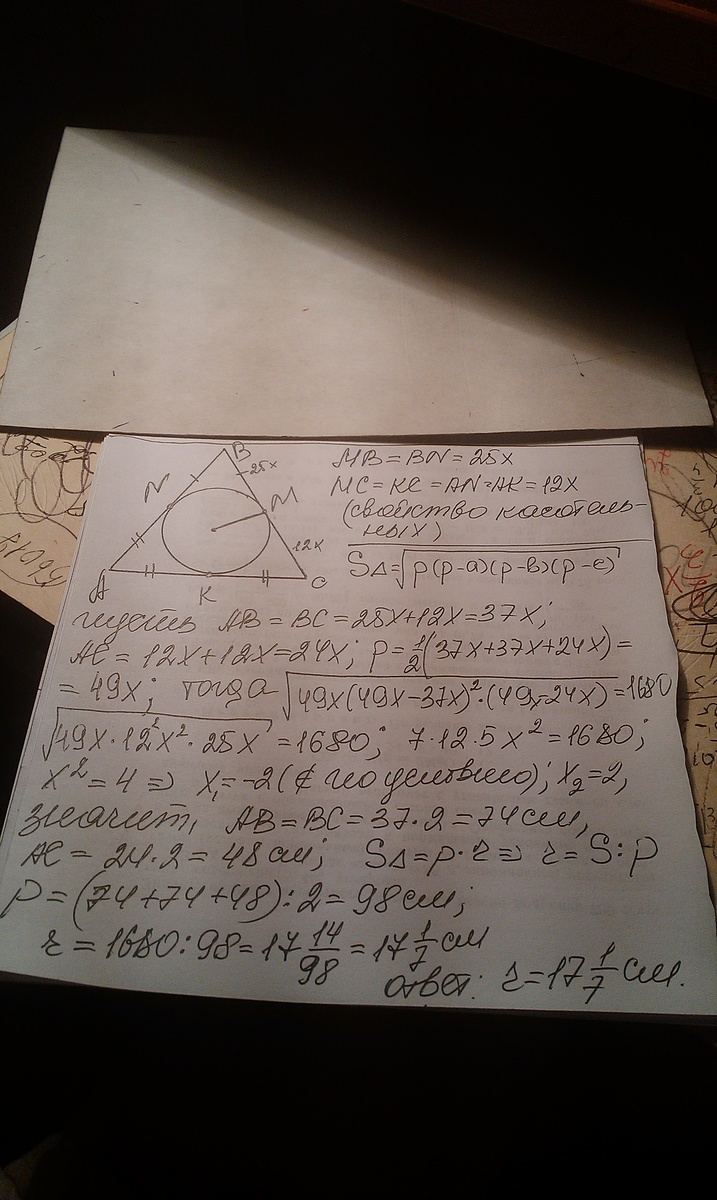 B
25x
N
M
12x
A
K
C
MB = BN = 25x
MC = KC = AN = AK = 12x
(свойство касатель-
ных)
S△ = √p(p-a)(p-b)(p-c)
пусть AB = BC = 25x+12x = 37x;
AC = 12x+12x = 24x; p = 1/2(37x+37x+24x) =
= 49x; тогда √49x(49x-37x)²·(49x-24x) = 1680
√49x·12²x²·25x = 1680; 7·12·5x² = 1680;
x² = 4 => x₁ = -2 (∉ по условию); x₂ = 2,
значит, AB = BC = 37·2 = 74 см,
AC = 24·2 = 48 см; S△ = p·r => r = S:p
p = (74+74+48):2 = 98 см;
r = 1680:98 = 17 14/98 = 17 1/7 см
ответ: r = 17 1/7 см.